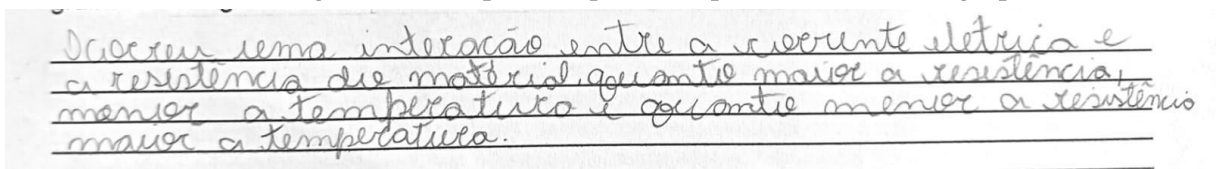 Ocorreu uma interacão entre a corrente eletrica e
a resistência do material, quanto maior a resistência,
menior a temperatura e quanto menior a resistência
maior a temperatura.